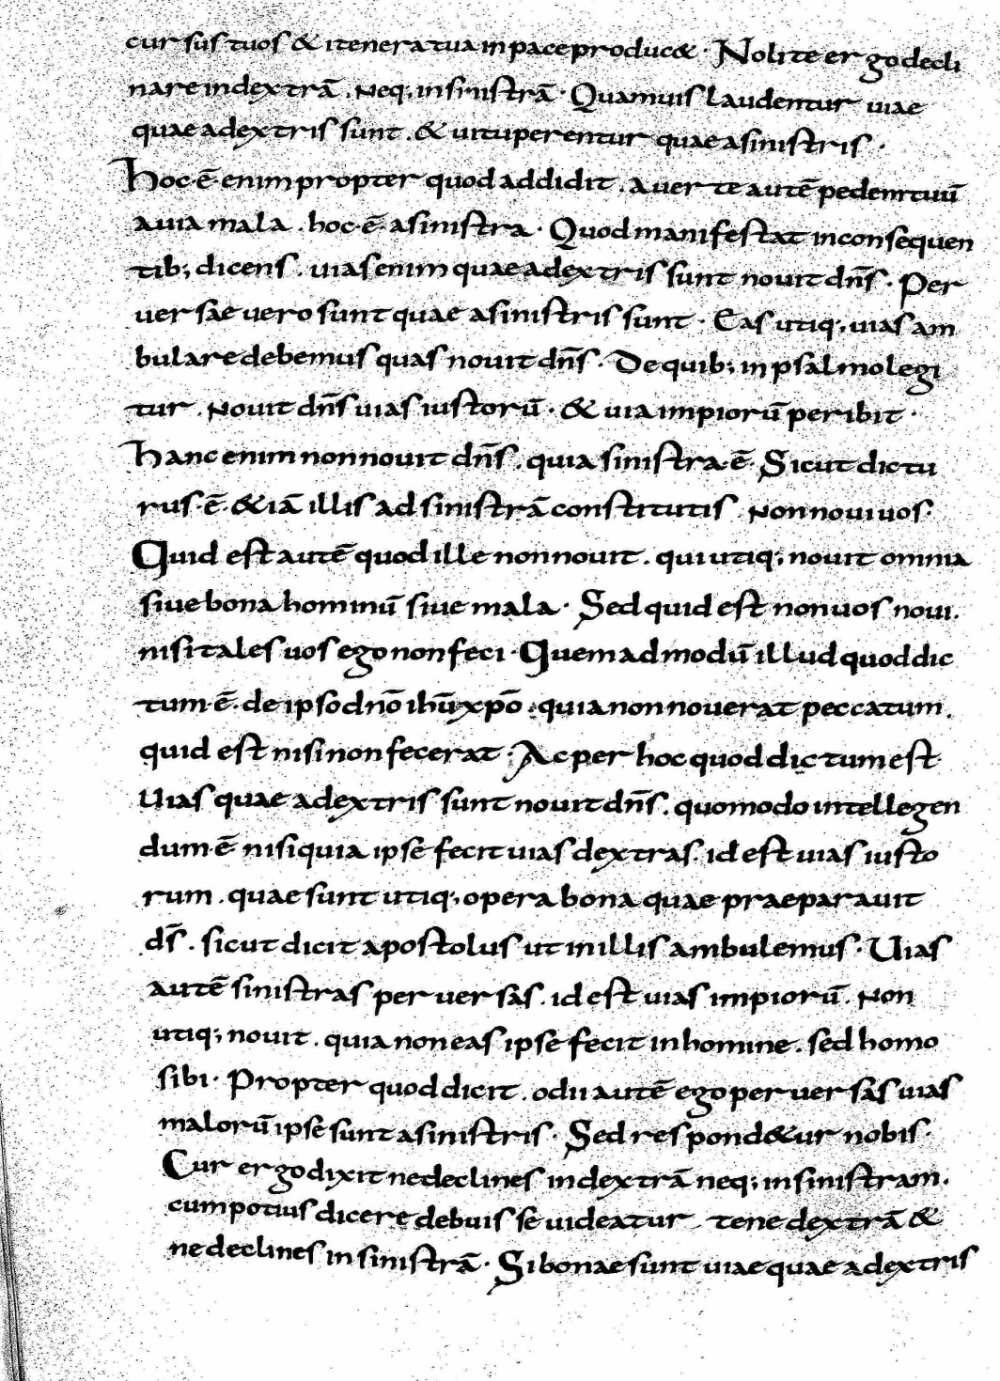 cursus tuos & itenera tua in pace produc&. Nolite ergo decli
nare in dextrā. Neq; in sinistrā. Quamuis laudentur uiae
quae a dextris sunt. & uituperentur quae a sinistris.
Hoc ē enim propter quod addidit. auerte autē pedem tuū
a uia mala. hoc ē a sinistra. Quod manifestat in consequen
tib; dicens. uias enim quae a dextris sunt nouit dn̄s. Per
uersae uero sunt quae a sinistris sunt. Eas utiq; uias am
bulare debemus quas nouit dn̄s. De quib; in psalmo legi
tur. Nouit dn̄s uias iustorū. & uia impiorū peribit.
Hanc enim non nouit dn̄s. quia sinistra ē. Sicut dictu
rus ē. &iā illis ad sinistrā constitutis. Non noui uos.
Quid est autē quod ille non nouit. qui utiq; nouit omnia
siue bona hominū siue mala. Sed quid est non uos noui.
nisi tales uos ego non feci. Quemadmodū illud quod dic
tum ē. de ipso dn̄o ihū xp̄o. quia non nouerat peccatum.
quid est nisi non fecerat. Ac per hoc quod dictum est
Uias quae a dextris sunt nouit dn̄s. quomodo intellegen
dum ē nisi quia ipse fecit uias dextras. id est uias iusto
rum. quae sunt utiq; opera bona quae praeparauit
ds̄. sicut dicit apostolus ut in illis ambulemus. Uias
autē sinistras peruersas. id est uias impiorū. Non
utiq; nouit. quia non eas ipse fecit in homine. sed homo
sibi. Propter quod dicit. odii autē ego peruersas uias
malorū ipse sunt a sinistris. Sed respond&ur nobis.
Cur ergo dixit ne declines in dextrā neq; in sinistram.
cum potius dicere debuisse uideatur. tene dextrā &
ne declines in sinistrā. Si bonae sunt uiae quae a dextris